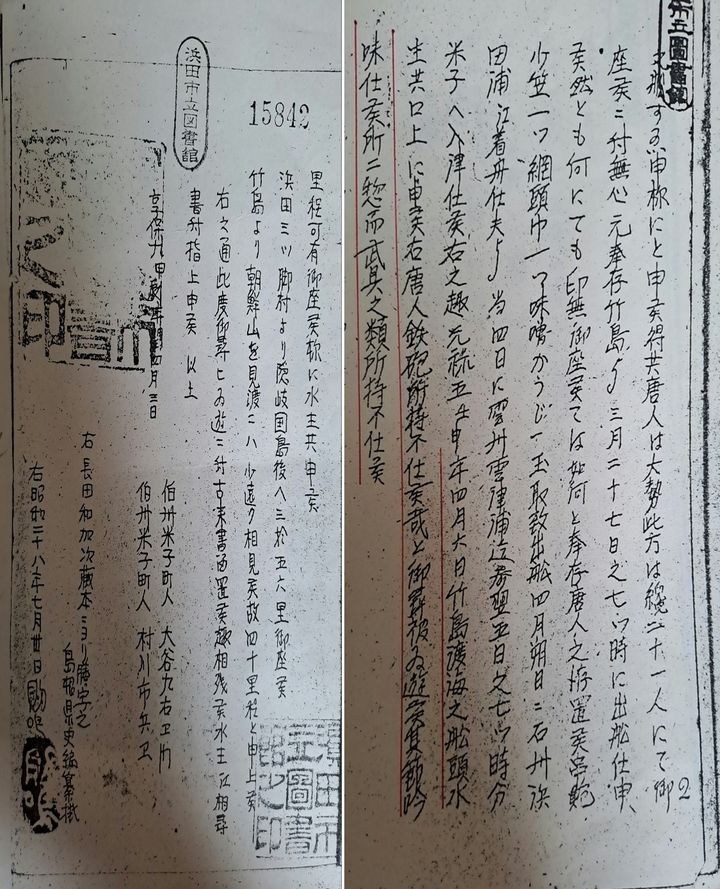 浜田市立圖書館
2
申称にと申候得共唐人は大勢此方は總二十一人にて御
座候ニ付無心元奉存竹島ゟ三月二十七日之七ツ時に出舩仕申
候然とも何にても印無御座候ては如何と奉存唐人之拵置候串鮑
少笠一ツ網頭巾一ツ味噌かうじ一玉取数出舩四月朔日ニ石州浜
田浦江着舟仕夫ゟ当四日に雲州雲津浦迄参翌五日之七ツ時分
米子へ入津仕候右之趣元禄五壬申年四月六日竹島渡海之舩頭水
主共口上に申候右唐人鉄砲所持不仕候哉と御尋被為遊候其節吟
味仕候所ニ惣而武具之類所持不仕候
浜田市立図書館
15842
里程可有御座候称に水主共申候
浜田三ツ脚村より隠岐国島後へ三拾五六里御座候
竹島より朝鮮山を見渡ニハ少遠ク相見候故四十里程と申上候
右之通此度御尋ニ為遊ニ付古来書留置候趣相残候水主江相尋
書付指上申候 以上
享保九甲辰年閏四月三日
伯州米子町人 大谷九右卫门
伯州米子町人 村川市兵卫
右 長田和加次蔵本ニヨリ謄写之
島根県史編纂掛
右昭和二十八年七月卅日
浜田市立圖書館之印